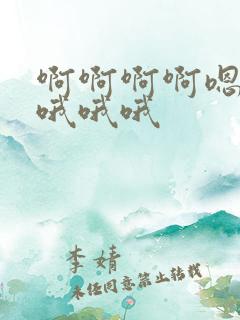 啊啊啊啊嗯
哦哦哦
李婧
未经同意禁止转载